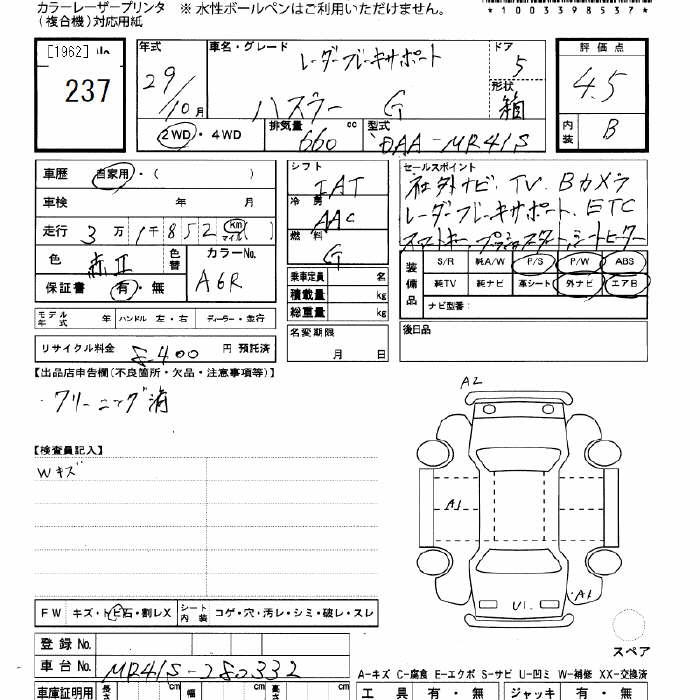 カラーレーザープリンタ ※ 水性ボールペンはご利用いただけません。
(複合機)対応用紙
*1003898537*
[1962]
237
年式 29/10月
車名・グレード レーダーブレーキサポート
ハスラー G
ドア 5
形状 箱
2WD・4WD
排気量 660 cc
型式 DAA-MR41S
評価点 4.5
内装 B
車歴 自家用・( )
車検 年 月
走行 3万1千852 km マイル ( )
色 赤II
色替
カラーNo. A6R
保証書 有・無
シフト IAT
冷房 AAC
燃料 G
乗車定員 名
積載量 kg
総重量 kg
セールスポイント
社外ナビ、TV、Bカメラ
レーダーブレーキサポート、ETC
スマートキー、プッシュスタート、シートヒーター
装備品
S/R 純A/W P/S P/W ABS
純TV 純ナビ 革シート 外ナビ エアB
ナビ型番:
モデル年式 年 ハンドル 左・右 ディーラー・走行
名変期限 月 日
後日品
リサイクル料金 8,400 円 預託済
【出品店申告欄(不良箇所・欠品・注意事項等)】
・クリーニング済
【検査員記入】
Wキズ
A2
A1
A1
U1
スペア
FW キズ・トビ石・割レX シート内装 コゲ・穴・汚レ・シミ・破レ・スレ
登録No.
車台No. MR41S-280332
A-キズ C-腐食 E-エクボ S-サビ U-凹ミ W-補修 XX-交換済
車庫証明用 長さ cm 幅 cm 高さ cm
工具 有・無 ジャッキ 有・無